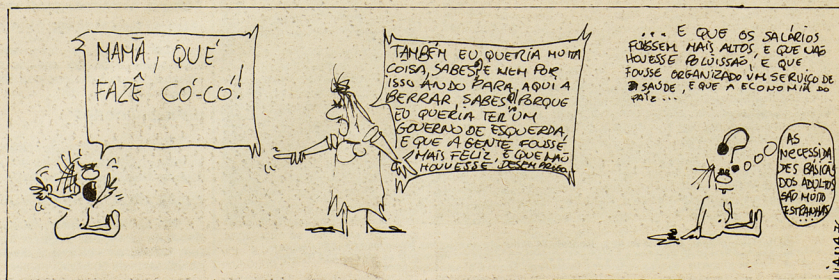 MAMÃ, QUÉ
FAZÊ CÓ-CÓ!
TAMBÉM EU QUERIA MUITA
COISA, SABES? E NEM POR
ISSO ANDO PARA AQUI A
BERRAR, SABES? PORQUE
EU QUERIA TER UM
GOVERNO DE ESQUERDA,
E QUE A GENTE FOUSSE
MAIS FELIZ, E QUE NÃO
HOUVESSE DESEMPREGO
... E QUE OS SALÁRIOS
FOUSSEM MAIS ALTOS, E QUE NÃO
HOUVESSE POLUISSÃO, E QUE
FOUSSE ORGANIZADO UM SERVIÇO DE
SAÚDE, E QUE A ECONOMIA DO
PAÍZ...
?
AS
NECESSIDA
DES BÁSICAS
DOS ADULTOS
SÃO MUITO
ESTRANHAS